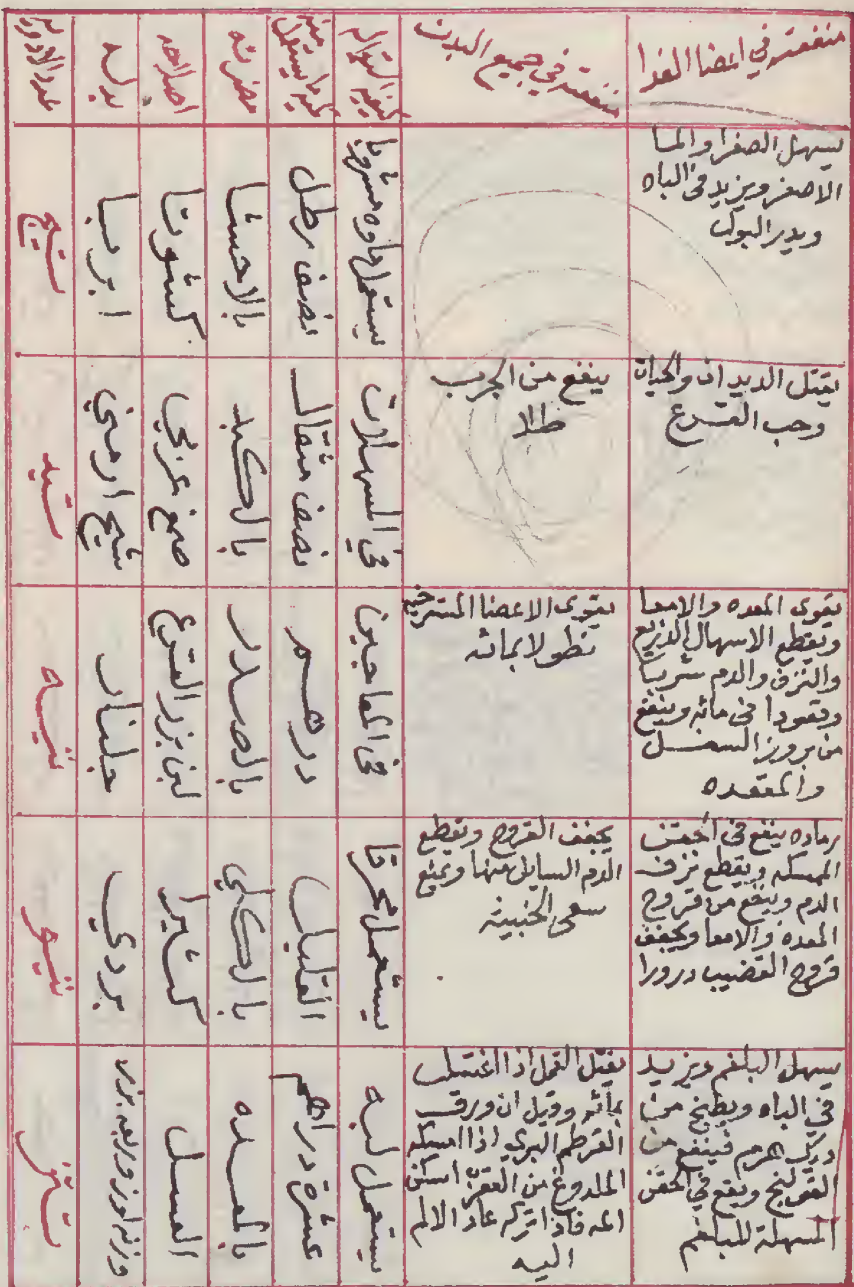 منفعته في اعضا الغدا
منفعته في جميع البدن
كيفية استعماله
كمية ما يستعمل منه
مضرته
اصلاحه
بدله
عدد الادويه
يسهل الصفرا والما
الاصفر ويزيد في الباه
ويدر البول
يستعمل ماوه مشروبا
نصف رطل
بالاحشا
كشوتا
يقتل الديدان والحيات
وحب القرع
ينفع من الجرب
طلا
في المسهلات
نصف مثقال
بالكبد
صمغ عربي
شيح ارمني
يقوى المعده والامعا
ويقطع الاسهال الذريع
والنزف والدم شربا
وقعودا في مائه وينفع
من بروز السفل
والمقعده
يقوى الاعضا المسترخيه
نطولا بمائه
في المعاجين
درهم
بالصدر
لبن بزر القرع
جلنار
رماده ينفع في الحقن
الممسكه ويقطع نزف
الدم وينفع من قروح
المعده والامعا ويجفف
قروح القضيب درورا
يجفف القروح ويقطع
الدم السايل منها ويمنع
سعى الخبيثه
يستعمل محرقا
بالكلي
كثيرا
بردي
يسهل البلغم ويزيد
في الباه ويطبخ من
ديك هرم فينفع من
القولنج ويقع في الحقن
المسهلة للبلغم
يقتل القمل اذا اغتسل
بمائه وقيل ان ورق
القرطم البري اذا امسكه
الملدوغ من العقرب اسكن
المه فاذا تركه عاد الالم
اليه
يستعمل لبه
عشرة دراهم
بالمعده
العسل
وزنه لوز وربعه